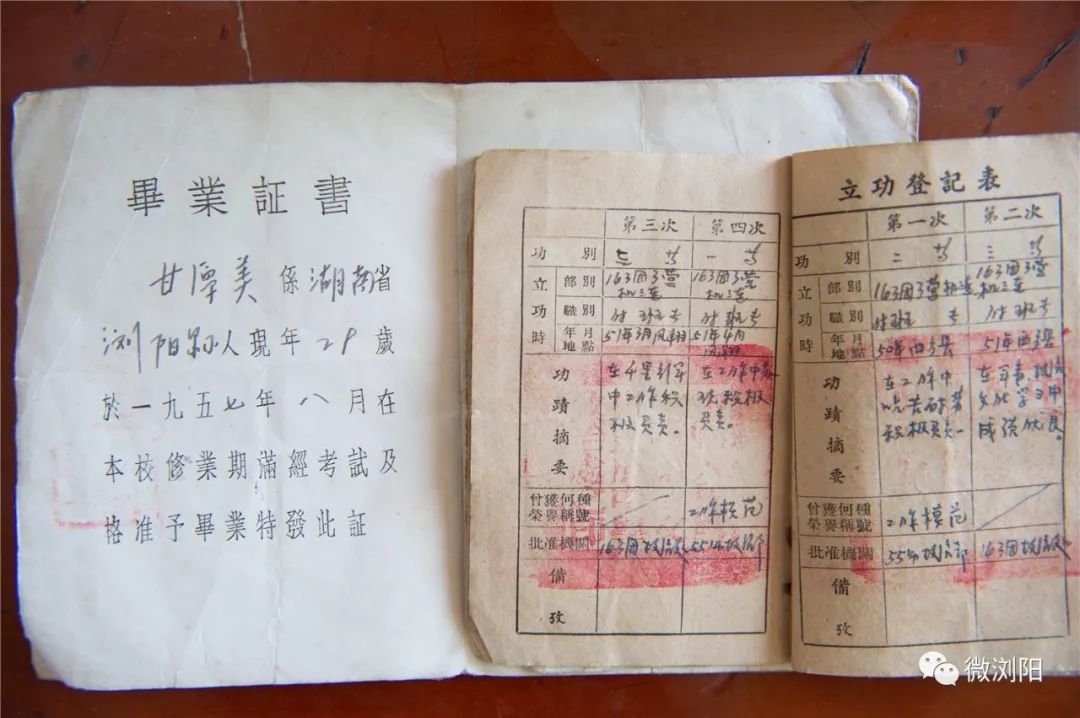 畢業証書
甘潭美係湖南省
浏阳县人現年29歲
於一九五七年八月在
本校修業期滿經考試及
格准予畢業特發此証
第三次 第四次
功別 三等 一等
立功時 部別 163团3营机三連 163团3营机三連
職別 付班長 付班長
年月地點 51年3月 51年4月
功蹟摘要 在千里行军中工作积极负责。 在工作中积极负责。
曾獲何種榮譽稱號 工作模范
批准機關 163团 55师
備攷
立功登記表
第一次 第二次
功別 二等 三等
立功時 部別 163团3营机三連 163团3营机三連
職別 付班長 付班長
年月地點 50年 51年
功蹟摘要 在工作中吃苦耐劳积极负责。 在军事文化学习中成績优良。
曾獲何種榮譽稱號 工作模范
批准機關 55师 163团
備攷
微浏阳